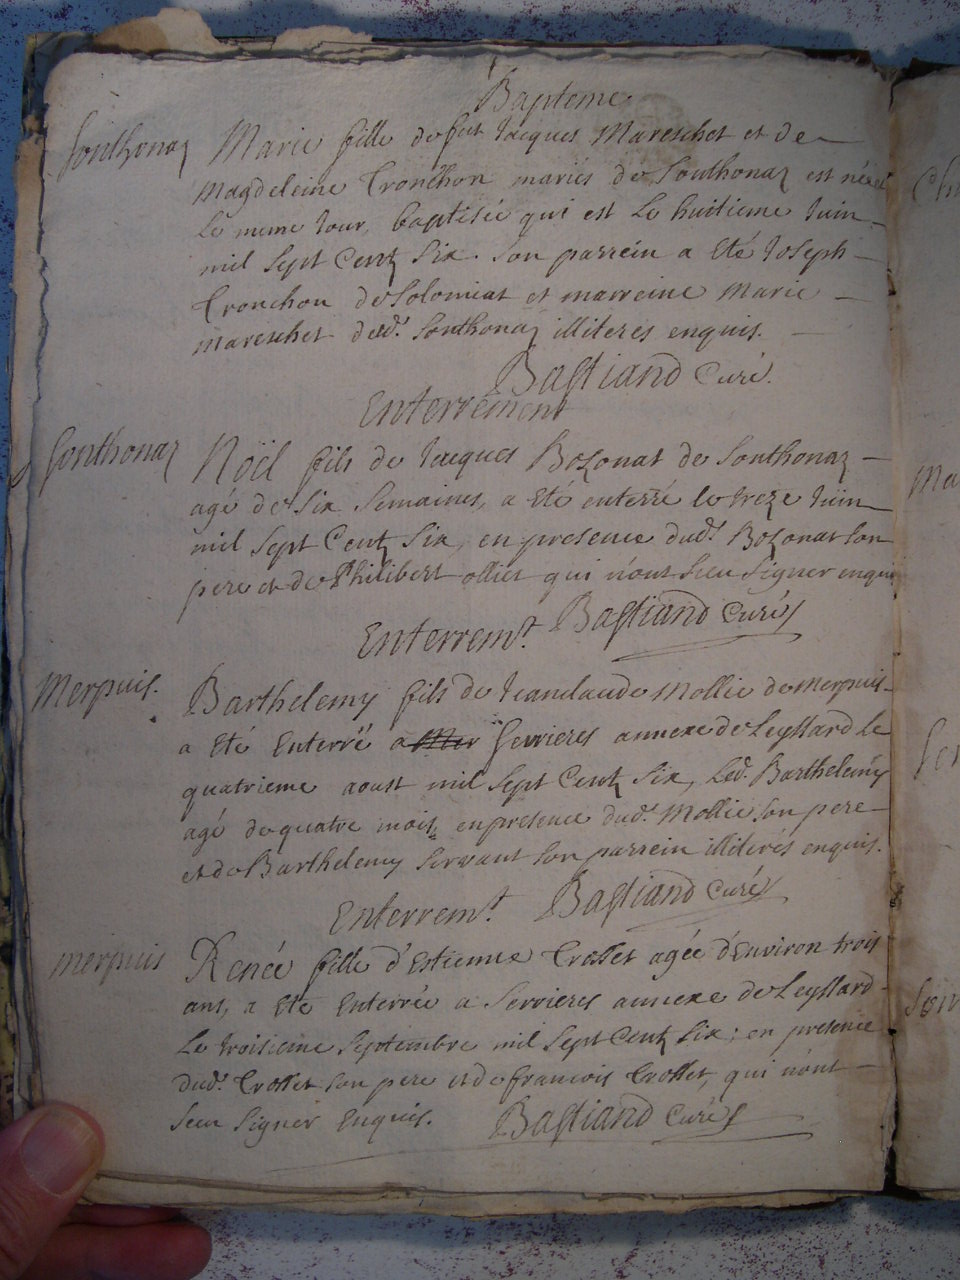 Bapteme.
Sonthonaz
Marie fille de feu Jacques Mareschet et de
Magdeleine Tronchon mariés de Sonthonaz est née et
Le meme Jour, baptisée qui est Le huitieme Juin
mil Sept Centz Six. Son parrein a Eté Joseph
Tronchon de Solomiat et marreine Marie
mareschet dud.t Sonthonaz illiteres enquis.
Bastiand Curé.
Enterrement
Sonthonaz
Noël fils de Jacques Bozonat de Sonthonaz
agé de Six Semaines, a Eté enterré le treze Juin
mil Sept Centz Six, en presence dud.t Bozonat Son
pere et de Philibert ollier qui n'ont Sceu Signer enquis
Bastiand Curé
Enterrem.t
Merpuis.
Barthelemy fils de Jeanclaude Mollie de Merpuis
a Eté Enterré a Serrieres annexe de Leyssard Le
quatrieme aoust mil Sept Centz Six, Led. Barthelemy
agé de quatre mois, en presence dud.t Mollie Son pere
et de Barthelemy Servant Son parrein illiterés enquis.
Bastiand Curé
Enterrem.t
merpuis
Renée fille d'Estienne Trollet agée d'Environ trois
ans, a Eté Enterrée a Serrieres annexe de Leyssard
Le troisieme Septembre mil Sept Centz Six; en presence
dud.t Trollet Son pere et de francois Trollet, qui n'ont
Sceu Signer Enquis.
Bastiand Curé